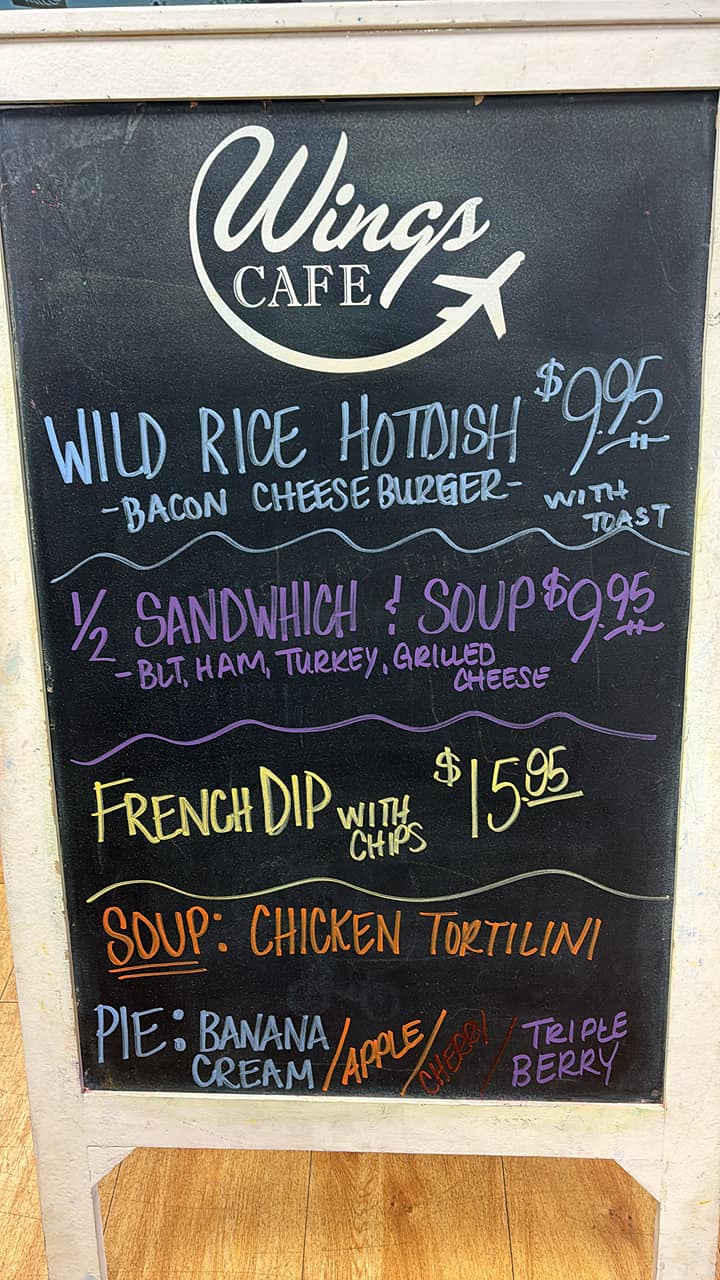 Wings
CAFE
WILD RICE HOTDISH $9.95
-BACON CHEESEBURGER- WITH
TOAST
1/2 SANDWHICH & SOUP $9.95
- BLT, HAM, TURKEY, GRILLED
CHEESE
FRENCH DIP WITH CHIPS $15.95
SOUP: CHICKEN TORTILINI
PIE: BANANA CREAM / APPLE / CHERRY / TRIPLE BERRY